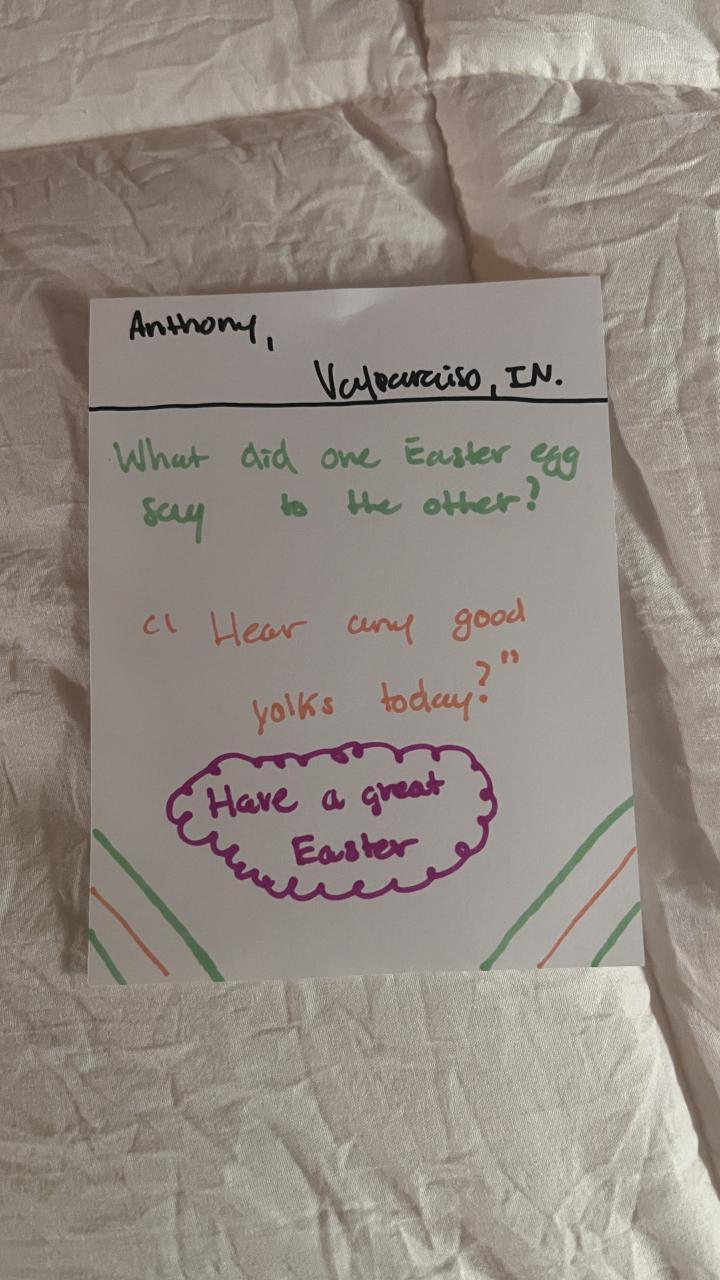 Anthony,
Valparaiso, IN.
What did one Easter egg
say to the other?
"Hear any good
yolks today?"
Have a great
Easter